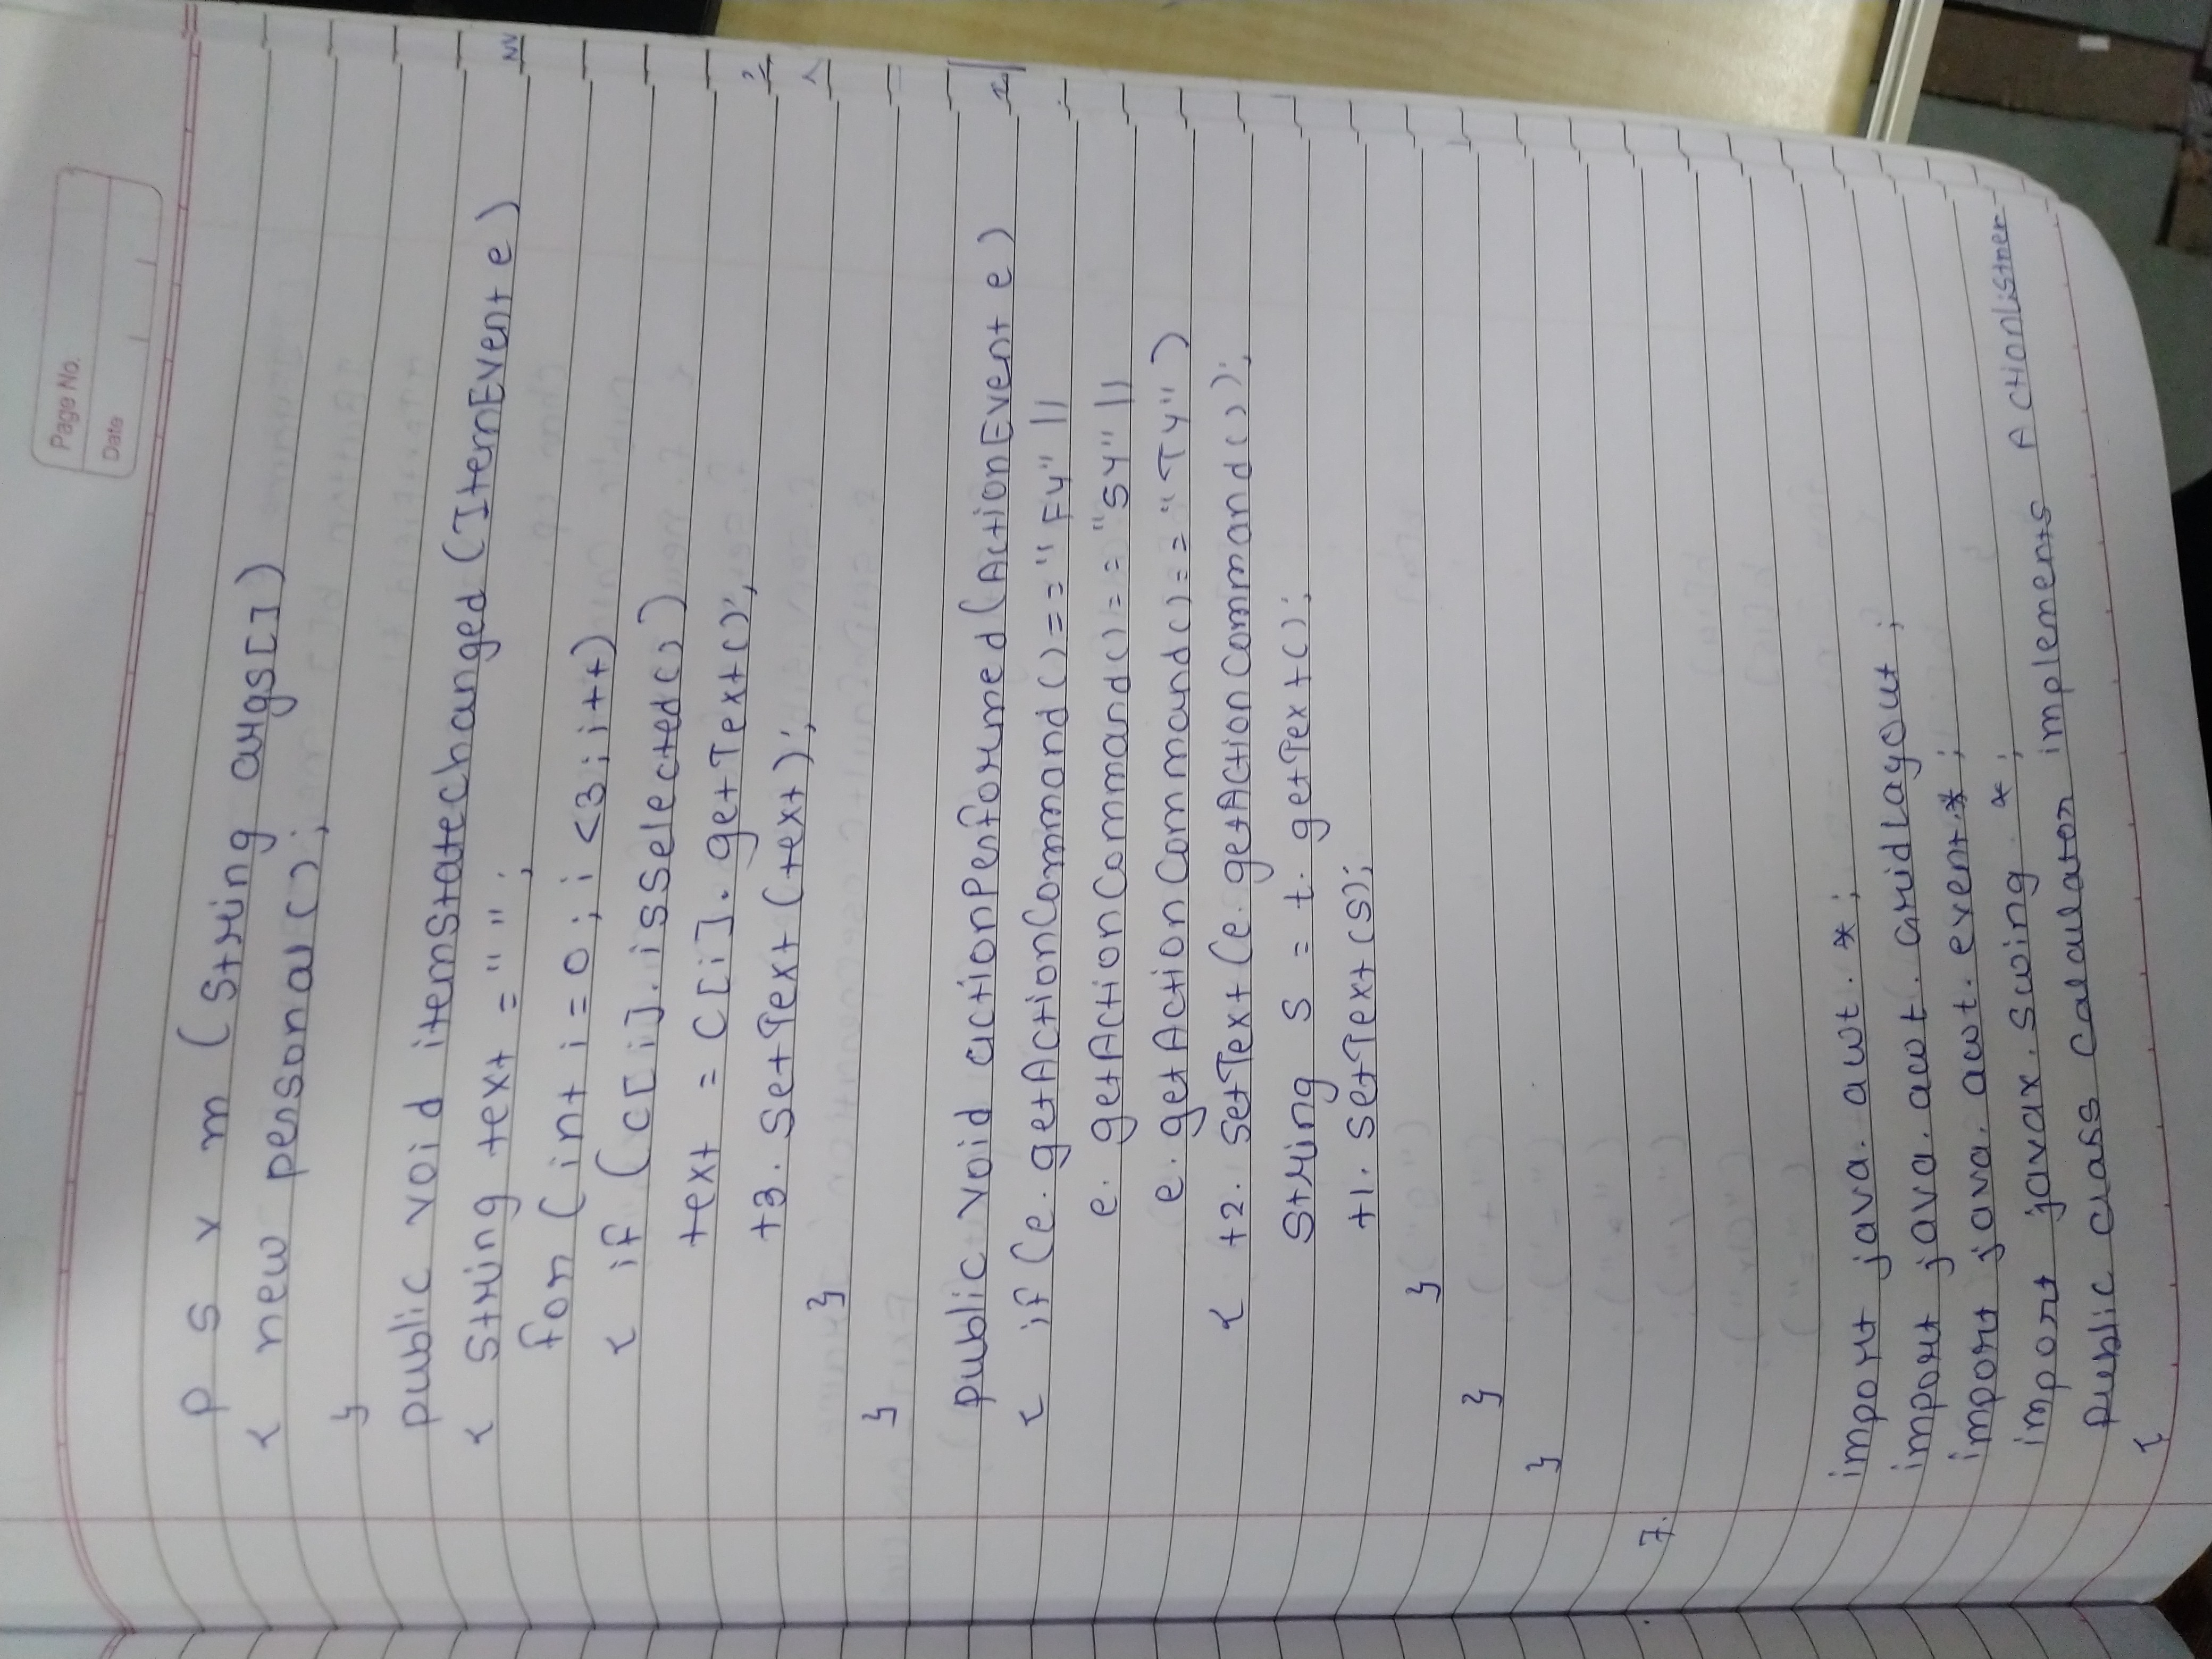 Page No.
Date
p s v m (String args[])
{ new personal();
}
public void itemStateChanged (ItemEvent e)
{ String text = " ";
for (int i = 0; i <3; i++)
{ if (c[i]. isSelected())
text = c[i]. getText();
t3. SetText (text);
}
}
public void actionPerformed (ActionEvent e)
{ if (e. getActionCommand () == "FY" ||
e. getActionCommand() == "SY" ||
e. getActionCommand() == "TY" )
{ t2. setText (e. getActionCommand());
String s = t. getText();
t1. setText (s);
}
}
}
7.
import java. awt. *;
import java. awt. GridLayout;
import java. awt. event.*;
import javax. swing. *;
public class Calculator implements ActionListner
{